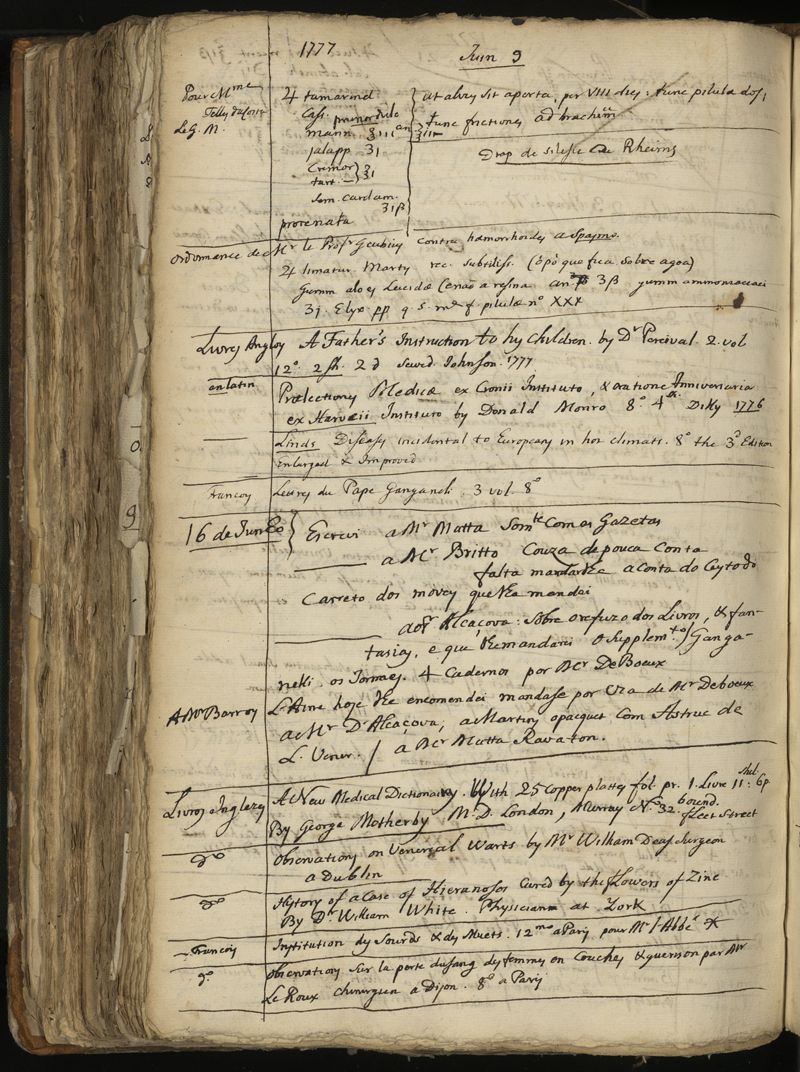 1777
Juin 9
Pour Mme
Le G. M.
♃ tamarind
Cass.
mann. ʒiii
jalapp ʒj
Cremor
tart. ʒj
Sem. cardam.
ʒiβ
pro renata
ut alvus sit aperta, per VIII dies: tunc pilulæ
tunc frictiones ad brachium
Drap de silesie de Rheims
Ordonnance de Mr le Profr Gaubius contra hæmorrhoides a Spasmo.
♃ limatur. Marty rec. subtiliss. (épò que fica sobre agoa)
Gumm aloes Lucidæ (senaõ a resina an ʒβ gumm ammoniaci
ʒj. Elyx pp q. s. mde f. pilulæ no XXX
Livres Angloy A Father's Instruction to hy Children. by Dr Percival 2. vol
12o. 2 sh. 2 d sewed. Johnson. 1777
en latin Prælectiony Medicæ ex Cronii Instituto, & oratione Anniversaria
ex Harveii Instituto by Donald Monro 8o. 4 sh. Dilly 1776
Linds Diseases incidental to Europeans in hot climats. 8o the 3d Edition
Enlarged & Improved
Francois Lettres du Pape Ganganeli. 3 vol. 8o
16 de Junho Escrevi a Mr Matta Somte Com as Gazetas
a Mr Britto Couza de pouca Conta
falta mandarlhe a conta do Ceyto do
Carreto dos movey que lhe mandei
ao Sr Alcáçova: sobre o refuzo dos Livros, & fan-
tasias, e que lhe mandarei o Supplemto / Ganga-
nelli. os Jornaes. 4 Cadernos por Mr De Boeux
A Mr Barroy L'Aine hoje lhe encomendei mandase por via de Mr Deboeux
a Mr D'Alcáçova, a Martiny o pacquet Com Astruc de
L. Vener. / à Mr Matta Ravaton.
Livros Inglezes A New Medical Dictionary. With 25 Copper plattes fol. pr. 1. Livre 11 shil: 6p
bound.
By George Motherby M. D. London, Murray No. 32 fleet Street
do Observations on Venereal Warts by Mr William Dease Surgeon
a Dublin
do Hystory of a Case of Hieranosos Cured by the flowers of Zinc
By Dr William White. Physician at York
Francois Institution des Sourds & des Muets. 12mo a Paris pour Mr l'Abbé *
do Observations sur la perte du sang des femmes en Couches & guerison par Mr
Le Roux chirurgien a Dijon. 8o a Paris